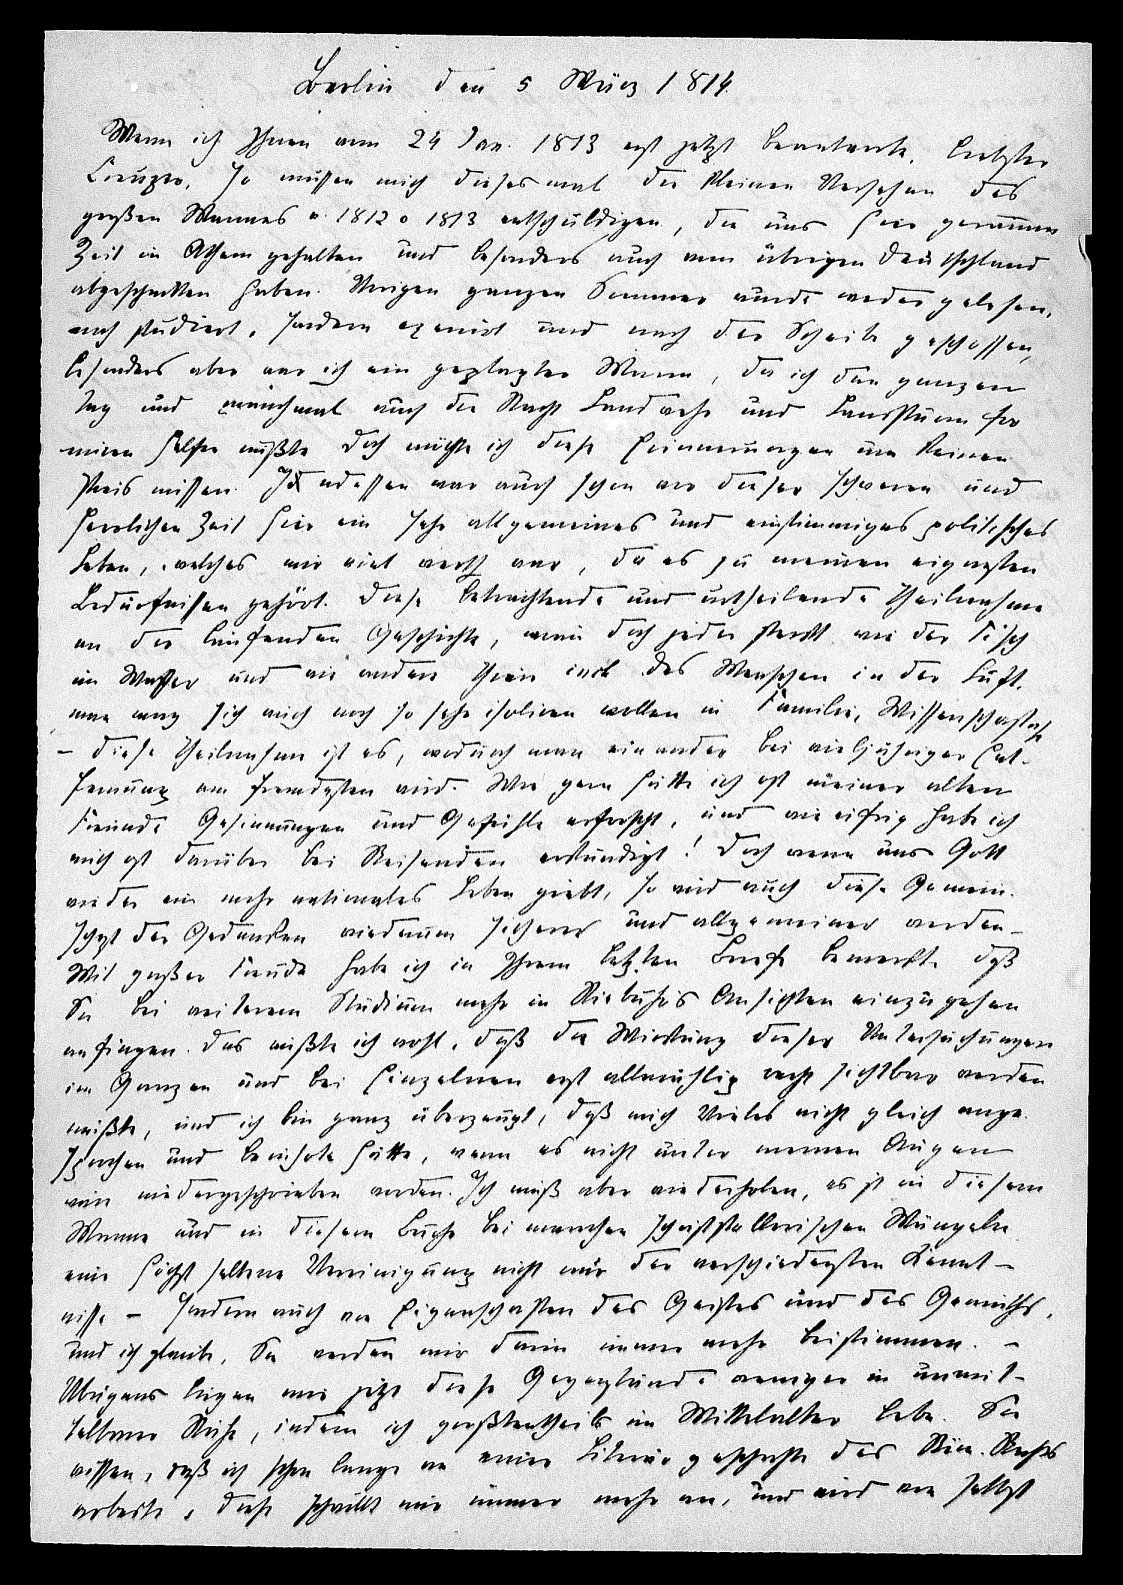 Berlin den 5 März 1814.
Wenn ich Ihren vom 24 Jan. 1813 erst jetzt beantworte, liebster
Creuzer, so müssen mich diesesmal die kleinen Versehen des
großen Mannes v. 1812 o 1813 entschuldigen, die uns hier geraume
Zeit in Athem gehalten und besonders auch vom übrigen Deutschland
abgeschnitten haben. Vorigen ganzen Sommer wurde weder gelesen,
noch studiert, sondern exercirt und nach der Scheibe geschossen,
besonders aber war ich ein geplagter Mann, da ich den ganzen
Tag und manchmal auch die Nacht Landwehr und Landsturm for
miren helfen mußte. Doch möchte ich diese Erinnerungen um keinen
Preis missen. Indessen war auch schon vor dieser schweren und
herrlichen Zeit hier ein sehr allgemeines und einstimmiges politisches
Leben, welches mir viel werth war, da es zu meinen eigensten
Bedürfnissen gehört. Diese betrachtende und urtheilende Theilnahme
an der laufenden Geschichte, worin doch jeder steckt wie der Fisch
im Wasser und wie andere Thiere incl. des Menschen in der Luft,
man mag sich auch noch so sehr isoliren wollen in Familie, Wissenschaft
– diese Theilnahme ist es, wodurch man einander bei vieljähriger Ent-
fernung am fremdesten wird. Wie gern hätte ich oft meiner alten
Freunde Gesinnungen und Gefühle erforscht, und wie eifrig habe ich
mich oft darüber bei Reisenden erkundigt! Doch wenn uns Gott
wieder ein mehr nationales Leben giebt, so wird auch diese Gemein-
schaft der Gedanken wiederum sicherer und allgemeiner werden –
Mit großer Freude habe ich in Ihrem letzten Briefe bemerkt daß
Sie bei weiterem Studium mehr in Niebuhrs Ansichten einzugehen
anfingen. Das wußte ich wohl, daß die Wirkung dieser Untersuchungen
im Ganzen und bei Einzelnen erst allmählig recht sichtbar werden
müßte, und ich bin ganz überzeugt, daß mich Vieles nicht gleich ange-
sprochen und berührt hätte, wenn es nicht unter meinen Augen
wäre niedergeschrieben worden. Ich muß aber wiederholen, es ist in diesem
Manne und in diesem Buche bei manchen schriftstellerischen Mängeln
eine höchst seltene Vereinigung nicht nur der verschiedensten Kennt-
nisse – sondern auch von Eigenschaften des Geistes und des Gemüths,
und ich glaube, Sie werden mir darin immer mehr beistimmen. –
Übrigens liegen mir jetzt diese Gegenstände weniger in unmit-
telbarer Nähe, indem ich großtentheils im Mittelalter lebe. Sie
wissen, daß ich schon lange an einer Literärgeschichte des Röm. Rechts
arbeite, diese schwillt mir immer mehr an, und wird von selbst